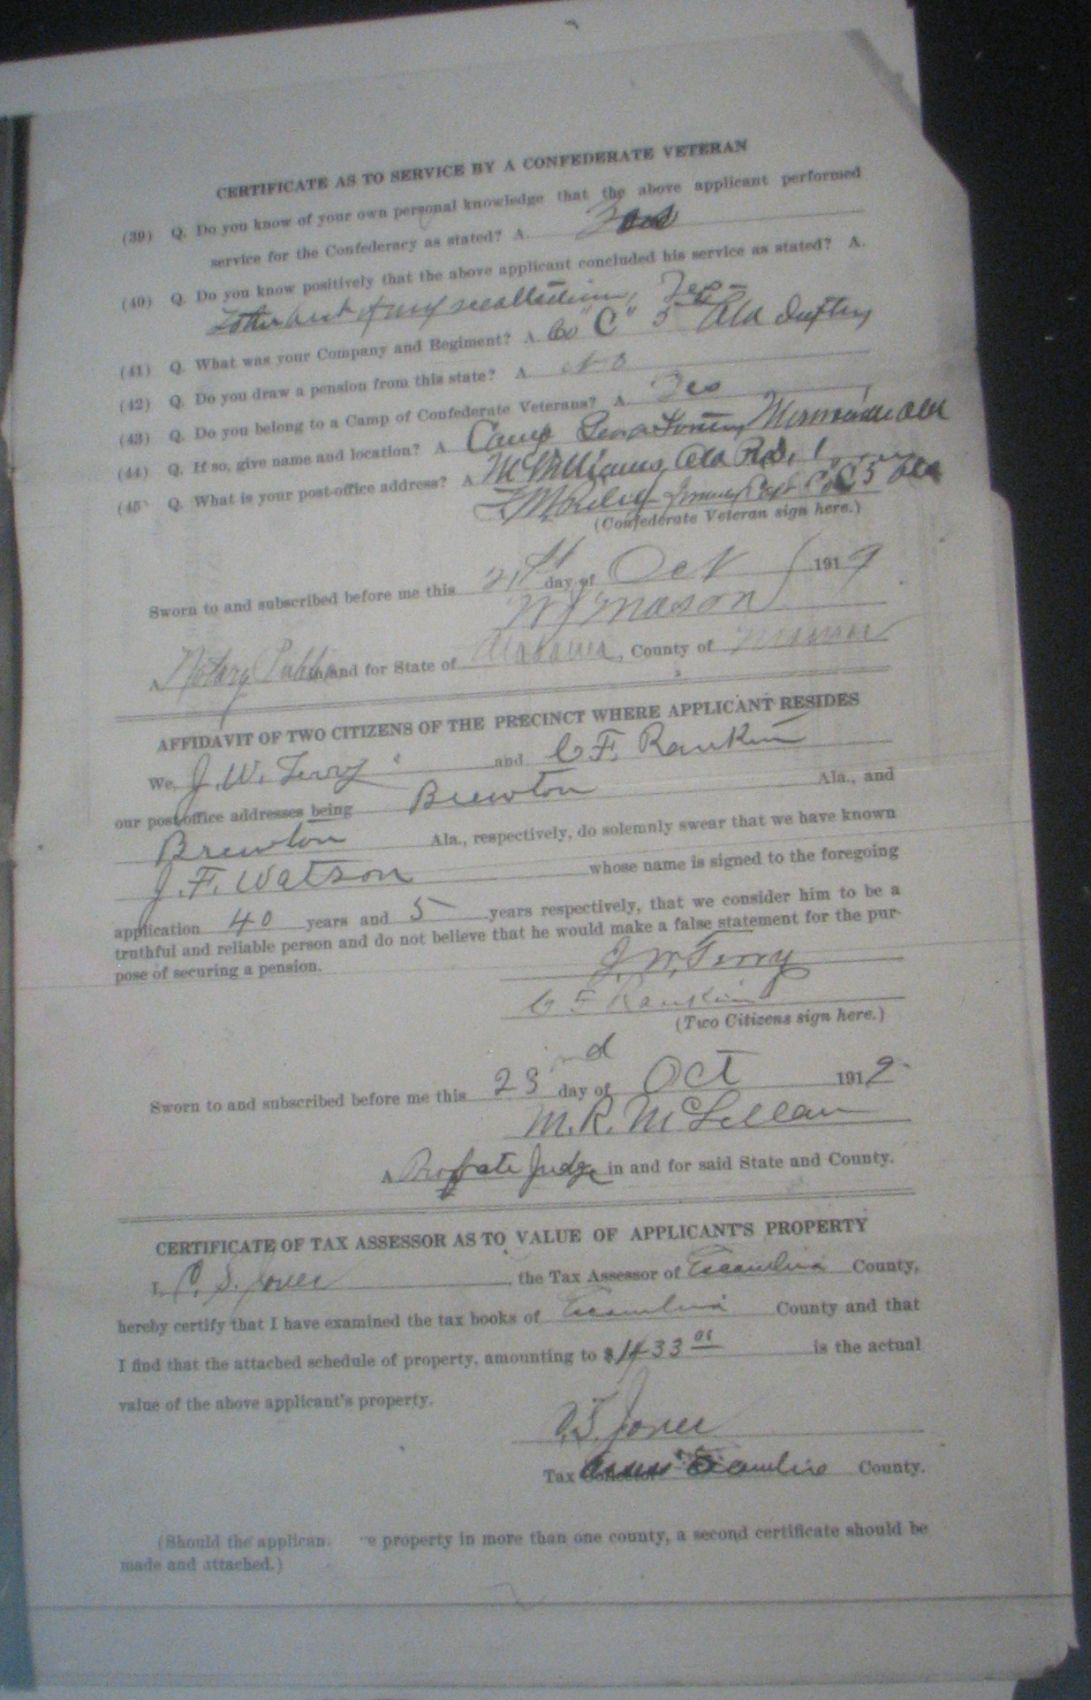 CERTIFICATE AS TO SERVICE BY A CONFEDERATE VETERAN
(39) Q. Do you know of your own personal knowledge that the above applicant performed
service for the Confederacy as stated? A. Yes
(40) Q. Do you know positively that the above applicant concluded his service as stated? A.
To the best of my recollection, Yes
(41) Q. What was your Company and Regiment? A. Co "C" 5 Ala Inftry
(42) Q. Do you draw a pension from this state? A. No
(43) Q. Do you belong to a Camp of Confederate Veterans? A. Yes
(44) Q. If so, give name and location? A. Camp Monroeville Ala
(45) Q. What is your post-office address? A. McWilliams Ala R.d. 1
Riley Co C 5 Ala
(Confederate Veteran sign here.)
Sworn to and subscribed before me this 21st day of Oct 1919
W J Mason
A Notary Public in and for State of Alabama, County of Monroe
AFFIDAVIT OF TWO CITIZENS OF THE PRECINCT WHERE APPLICANT RESIDES
We, J. W. Terry and C. F. Rankin
our post-office addresses being Brewton Ala., and
Brewton Ala., respectively, do solemnly swear that we have known
J. F. Watson whose name is signed to the foregoing
application 40 years and 5 years respectively, that we consider him to be a
truthful and reliable person and do not believe that he would make a false statement for the pur-
pose of securing a pension.
J. W. Terry
C F Rankin
(Two Citizens sign here.)
Sworn to and subscribed before me this 23nd day of Oct 1919
M. R. McLellan
A Probate Judge in and for said State and County.
CERTIFICATE OF TAX ASSESSOR AS TO VALUE OF APPLICANT'S PROPERTY
I, C. S. Jones, the Tax Assessor of Escambia County,
hereby certify that I have examined the tax books of Escambia County and that
I find that the attached schedule of property, amounting to $1433 is the actual
value of the above applicant's property.
C. S. Jones
Tax Escambia County.
(Should the applican e property in more than one county, a second certificate should be
made and attached.)